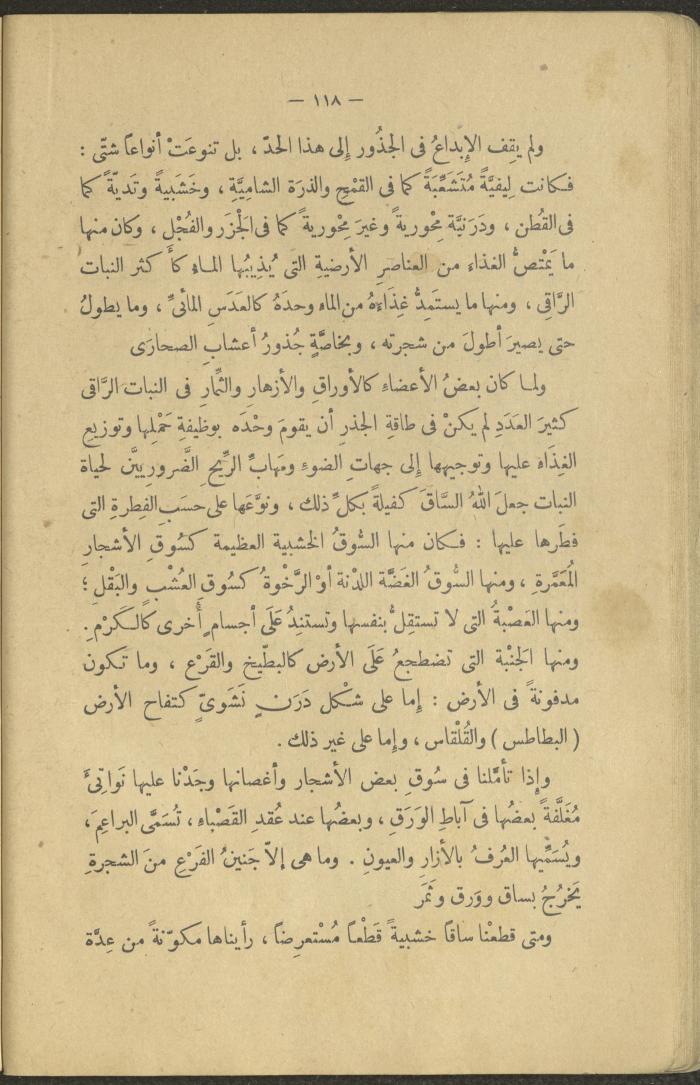 — ١١٨ —
ولم يقِف الإِبداعُ فى الجذُور إِلى هذا الحدّ ، بل تنوعَتْ أنواعًا شتّى :
فكانت لِيفيَّةً مُتَشَعِّبَةً كما فى القمْحِ والذرَة الشاميَّةِ ، وخَشَبيةً وتَديّةً كما
فى القُطن ، ودَرَنيَّة مِحْوريةً وغيرَ مِحْوريةً كما فى الْجزَر والفُجْل ، وكان منها
ما يَمْتصُّ الغذاء من العناصرِ الأرضيةِ التى يُذِيبُها الماء كأَ كثر النبات
الرَّاقِى ، ومنها ما يستَمِدُّ غِذَاءَهُ من الماء وحدَهُ كالعَدَسِ المائىِّ ، وما يطولُ
حتى يصيرَ أطولَ من شجرته ، وبخاصَّةٍ جُذورُ أعشابِ الصحارَى
ولما كان بعضُ الأعضاءِ كالأوراقِ والأزهارِ والثِّمارِ فى النبات الرَّاقى
كثيرَ العَدَدِ لم يكنْ فى طاقةِ الجذرِ أن يقومَ وحْدَه بوظيفةِ حَمْلِها وتوزيعِ
الغِذَاء عليها وتوجيهها إِلى جهاتِ الضوءِ ومَهابِّ الرِّيحِ الضَّروريَّين لحياة
النبات جعلَ اللهُ السَّاقَ كفيلةً بكلِّ ذلك ، ونوَّعَها على حسَبِ الفِطرةِ التى
فطَرها عليها : فكان منها السُّوقُ الخشبية العظيمة كسُوقِ الأشجارِ
الْمُعَمَّرةِ ، ومنها السُّوقُ الغَضَّة اللدْنة أوْ الرَّخْوةُ كسُوقِ العُشْب والبَقْل ؛
ومنها العَصْبةُ التى لا تستقِلُّ بنفسها وتستنِدُ عَلَى أجسام أُخرى كالكَرْمِ .
ومنها الجَنْبة التى تضطجعُ عَلَى الأرض كالبطّيخِ والقَرْع ، وما تكون
مدفونةً فى الأرض : إِما على شكْلِ دَرَنٍ نَشَوىّ كتفاح الأرض
( البطاطس ) والقُلْقاس ، وإِما على غير ذلك .
وإِذا تأمَّلنا فى سُوقِ بعض الأشجار وأغصانها وجَدْنا عليها نَواتِئَ
مُغَلَّفةً بعضُها فى آباطِ الوَرَقِ ، وبعضُها عند عُقد القَصْباءِ ، تُسَمَّى البراعِمَ ،
ويُسَمِّيها العُرفُ بالأزارِ والعيونِ . وما هى إِلاّ جَنينُ الفَرْعِ منَ الشجرةِ
يَخرُجُ بساق ووَرق وثَمَر
ومتى قطعْنا ساقًا خشبيةً قَطْعًا مُسْتعرِضًا ، رأيناها مكوّنةً من عِدَّة